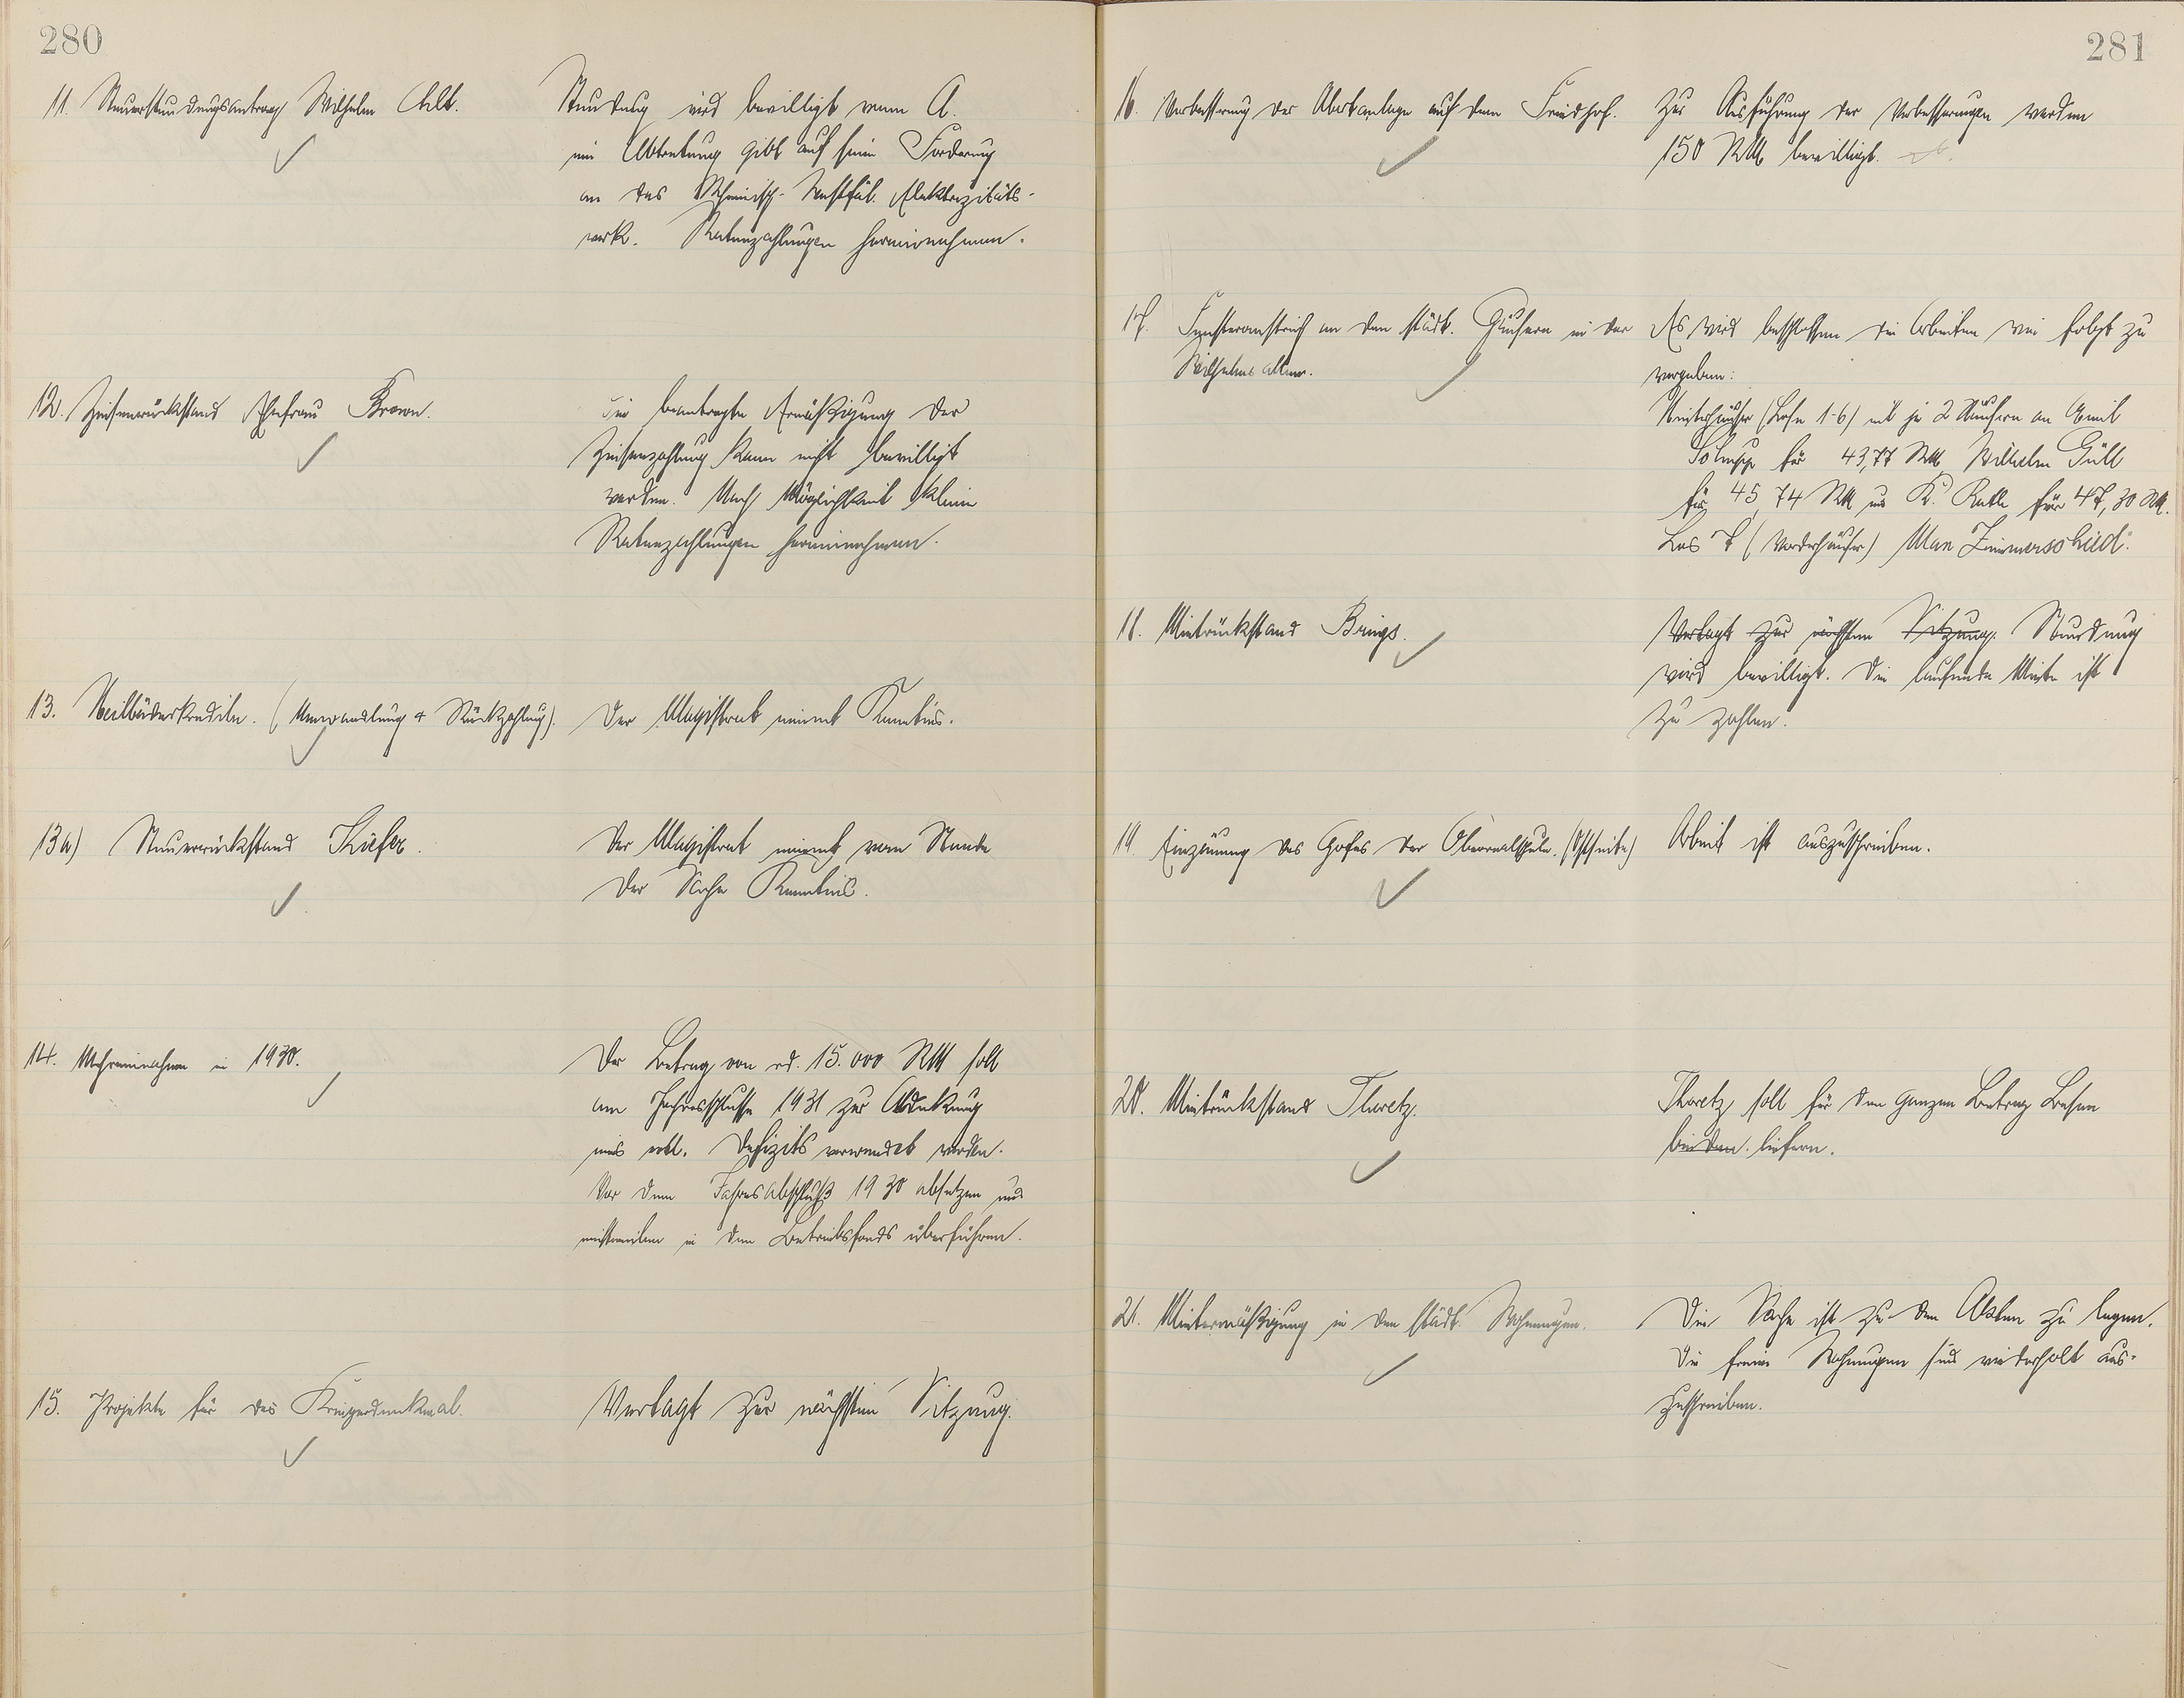 280
11. Steuerstundungsantrag Wilhelm
Stundung wird bewilligt wenn A.
eine Abtretung gibt auf seine Forderung
an das Rheinisch-Westfäl. Elektrizitäts-
werk. Ratenzahlungen hereinnehmen.
12. Zinsenrückstand Ehefrau
Die beantragte Ermäßigung der
Zinsenzahlung kann nicht bewilligt
werden. Nach Möglichkeit kleine
Ratenzahlungen hereinnehmen.
13. Heilbäderkredite. (Umwandlung & Rückzahlung).
Der Magistrat nimmt Kenntnis.
13a) Steuerrückstand Kiefer.
Der Magistrat nimmt vom Stande
der Sache Kenntnis.
14. Mehreinnahmen in 1930.
Der Betrag von rd. 15.000 RM soll
am Jahresschlusse 1931 zur Abdeckung
eines evtl. Defizits verwendet werden.
Vor dem Jahresabschluß 1930 absetzen und
einstweilen in den Betriebsfonds überführen.
15. Projekte für das Kriegerdenkmal.
Vertagt zur nächsten Sitzung.
281
16. Verbesserung der Abortanlage auf dem Friedhof.
Zur Ausführung der Verbesserungen werden
150 RM bewilligt.
17. Fensteranstrich an den städt. Häusern in der
Wilhelmsallee.
Es wird beschlossen die Arbeiten wie folgt zu
vergeben:
Hinterhäuser (Lose 1-6) mit je 2 Häusern an Emil
für 43,77 RM, Wilhelm Güll
für 45,74 RM und K. für 47,30 RM.
Los 7 (Vorderhäuser) Zimmerschied.
18. Mietrückstand Brings.
Vertagt zur nächsten Sitzung. Stundung
wird bewilligt. Die laufende Miete ist
zu zahlen.
19. Einzäunung des Hofes der Oberrealschule. (Ostseite)
Arbeit ist auszuschreiben.
20. Mietrückstand Theretz.
Theretz soll für den ganzen Betrag Besen
binden. liefern.
21. Mietermäßigung in den städt. Wohnungen.
Die Sache ist zu den Akten zu legen.
Die freien Wohnungen sind wiederholt aus-
zuschreiben.